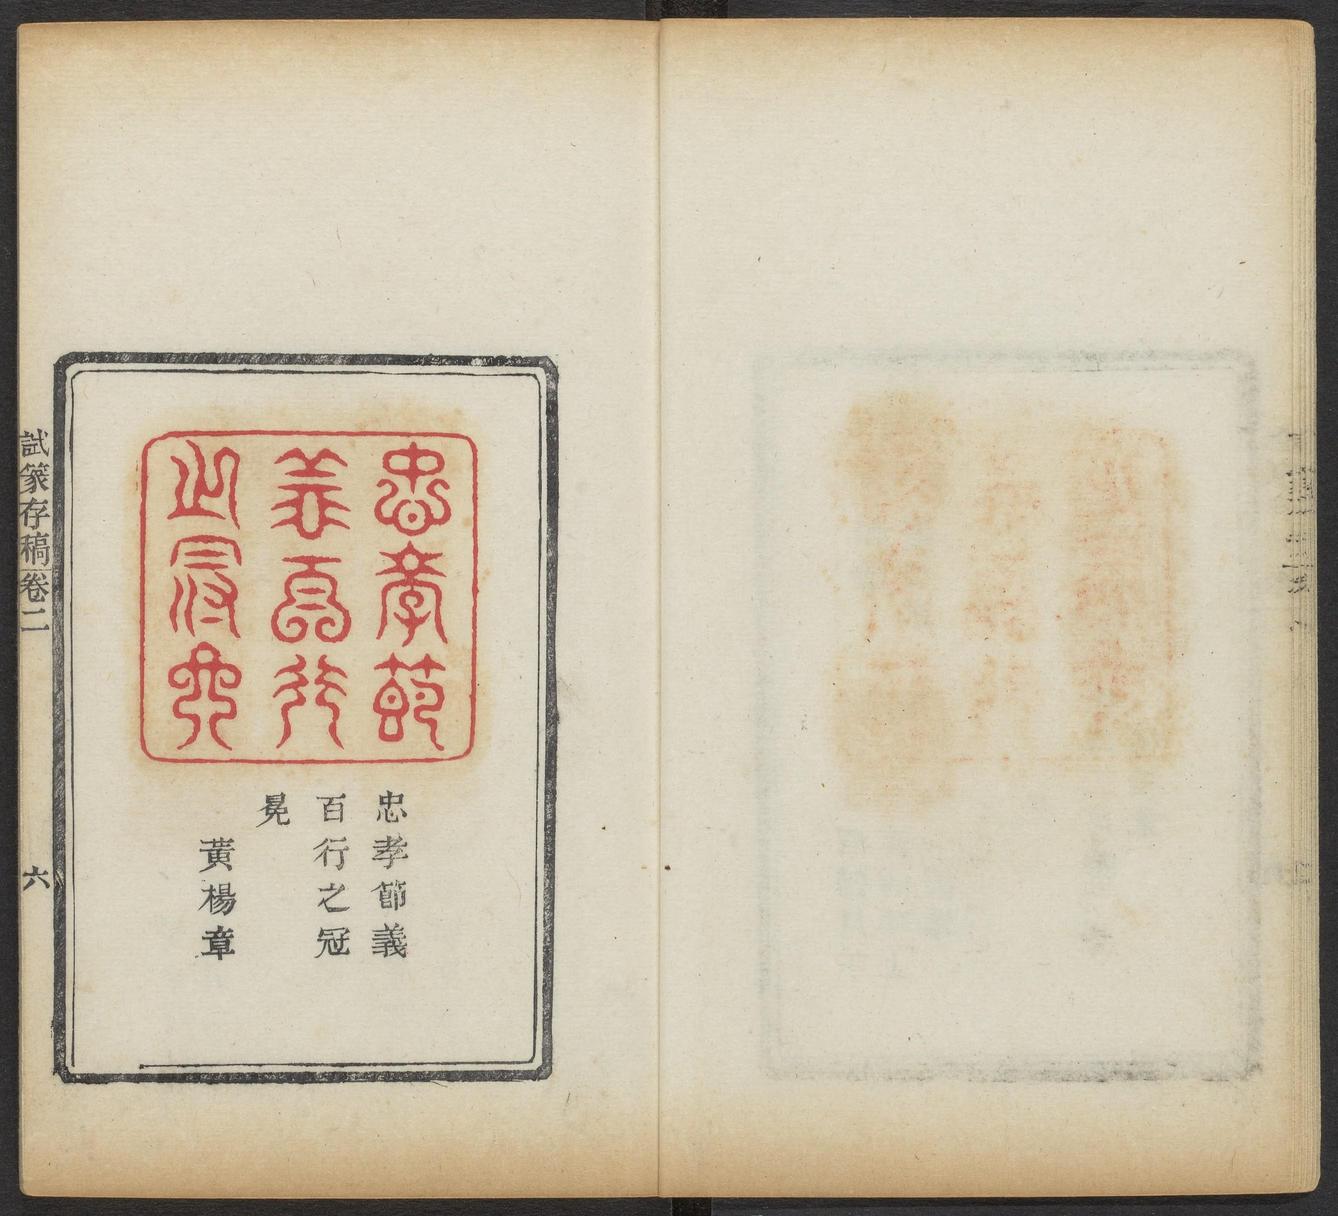 忠孝節
義百行
之冠冕
忠孝節義
百行之冠
冕
黃楊章
試篆存稿卷二
六